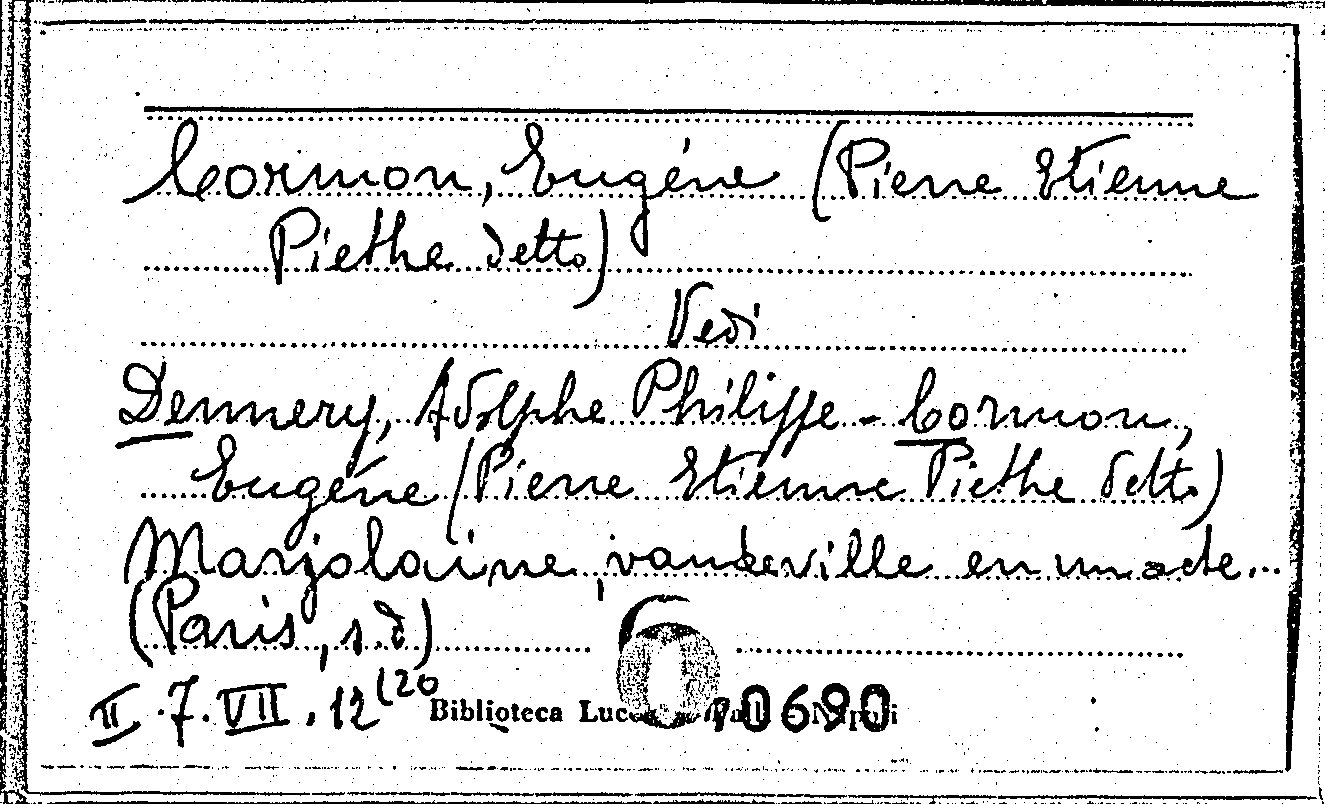 Cormon, Eugéne (Pierre Etienne
Piethe detto)
Vedi
Dennery, Adolphe Philippe - Cormon,
Eugéne (Pierre Etienne Piethe detto)
Marjolaine, vaudeville en un acte...
(Paris, s.d)
II.7.VII.12(20
Biblioteca Luc Napoli
70690